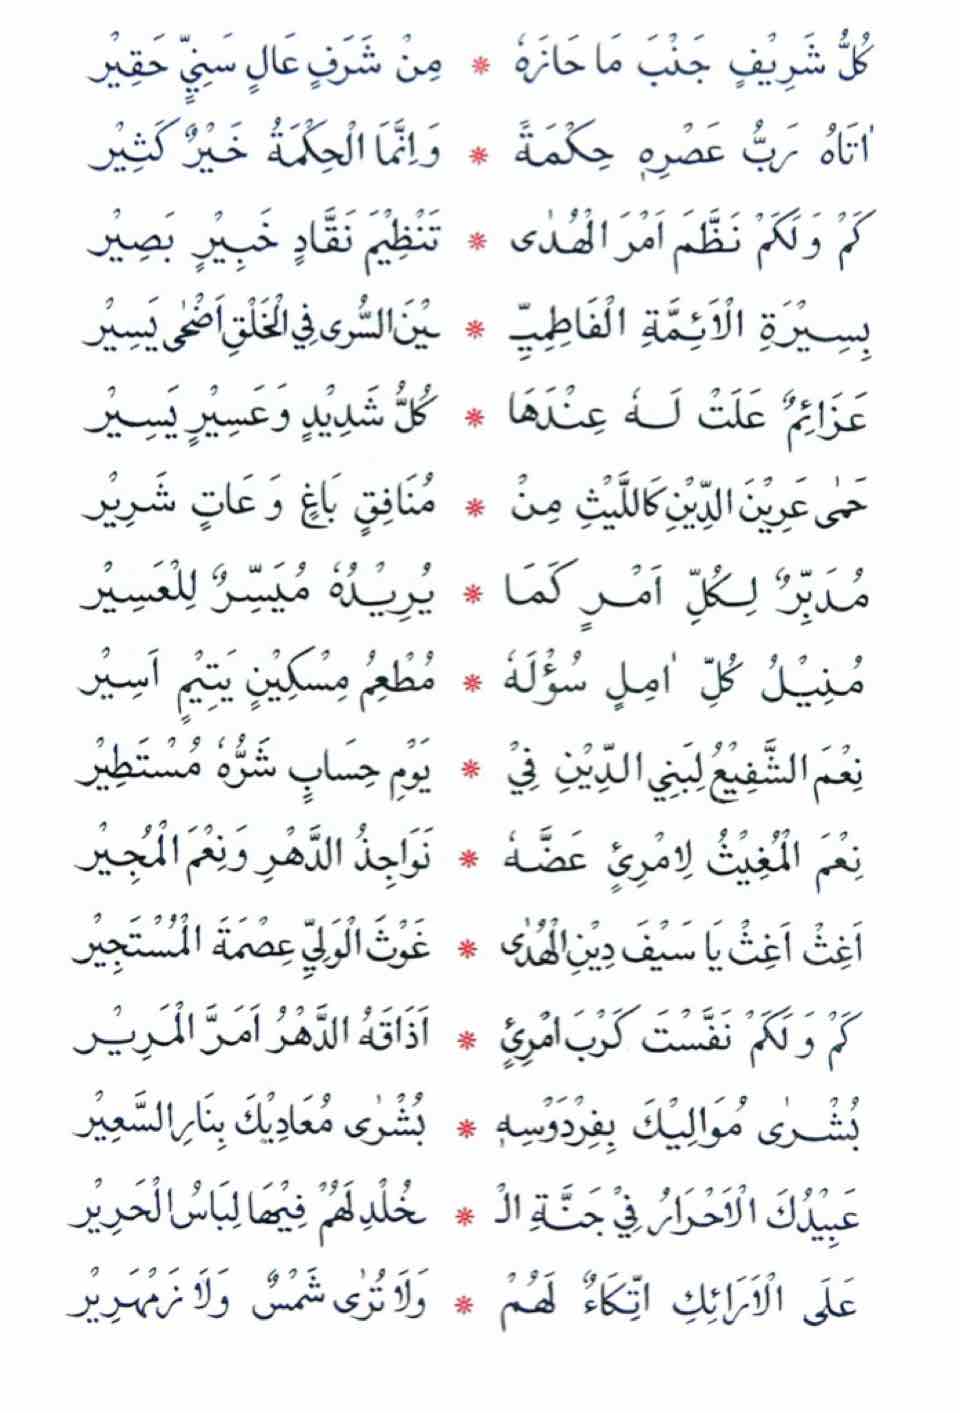 كُلُّ شَرِيْفٍ جَنْبَ مَا حَازَهٗ * مِنْ شَرَفٍ عَالٍ سَنِيٍّ حَقِيْر
اٰتَاهُ رَبُّ عَصْرِهٖ حِكْمَةً * وَاِنَّمَا الْحِكْمَةُ خَيْرٌ كَثِيْر
كَمْ وَلَكَمْ نَظَّمَ اَمْرَ الْهُدٰى * تَنْظِيْمَ نَقَّادٍ خَبِيْرٍ بَصِيْر
بِسِيْرَةِ الْاَئِمَّةِ الْفَاطِمِيِّـ * ـيْنَ السُّرٰى فِي الْخَلْقِ اَضْحٰى يَسِيْر
عَزَائِمٌ عَلَتْ لَهٗ عِنْدَهَا * كُلُّ شَدِيْدٍ وَعَسِيْرٍ يَسِيْر
حَمٰى عَرِيْنَ الدِّيْنِ كَاللَّيْثِ مِنْ * مُنَافِقٍ بَاغٍ وَعَاتٍ شَرِيْر
مُدَبِّرٌ لِكُلِّ اَمْرٍ كَمَا * يُرِيْدُهٗ مُيَسِّرٌ لِلْعَسِيْر
مُنِيْلُ كُلِّ اٰمِلٍ سُؤْلَهٗ * مُطْعِمُ مِسْكِيْنٍ يَتِيْمٍ اَسِيْر
نِعْمَ الشَّفِيْعُ لِبَنِي الدِّيْنِ فِيْ * يَوْمِ حِسَابٍ شَرُّهٗ مُسْتَطِيْر
نِعْمَ الْمُغِيْثُ لِامْرِئٍ عَضَّهٗ * نَوَاجِذُ الدَّهْرِ وَنِعْمَ الْمُجِيْر
اَغِثْ اَغِثْ يَا سَيْفَ دِيْنِ الْهُدٰى * غَوْثَ الْوَلِيِّ عِصْمَةَ الْمُسْتَجِيْر
كَمْ وَلَكَمْ نَفَّسْتَ كَرْبَ امْرِئٍ * اَذَاقَهُ الدَّهْرُ اَمَرَّ الْمَرِيْر
بُشْرٰى مُوَالِيْكَ بِفِرْدَوْسِهٖ * بُشْرٰى مُعَادِيْكَ بِنَارِ السَّعِيْر
عَبِيْدُكَ الْاَحْرَارُ فِيْ جَنَّةِ الْـ * ـخُلْدِ لَهُمْ فِيْهَا لِبَاسُ الْحَرِيْر
عَلَى الْاَرَائِكِ اتِّكَاءٌ لَهُمْ * وَلَا تُرٰى شَمْسٌ وَلَا زَمْهَرِيْر